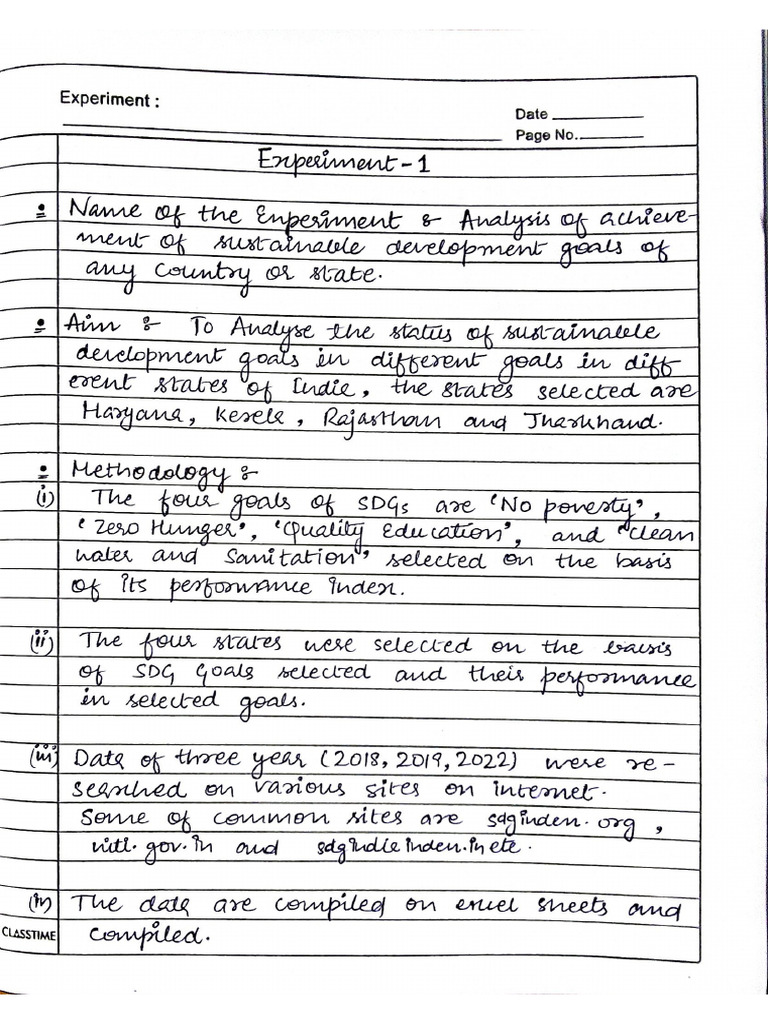 Experiment :
Date
Page No.
Experiment - 1
Name of the Experiment : Analysis of achieve-
ment of sustainable development goals of
any country or state.
Aim : To Analyse the status of sustainable
development goals in different goals in diff
erent states of India, the states selected are
Haryana, Kerela, Rajasthan and Jharkhand.
Methodology :
(i) The four goals of SDGs are 'No poverty',
'Zero Hunger', 'Quality Education', and 'clean
water and Sanitation' selected on the basis
of its performance index.
(ii) The four states were selected on the baisis
of SDG Goals selected and their performance
in selected goals.
(iii) Data of three year (2018, 2019, 2022) were re-
searched on various sites on internet.
Some of common sites are sdgindex.org,
niti.gov.in and sdgindiaindex.in etc.
(iv) The data are compiled on excel sheets and
compiled.
CLASSTIME